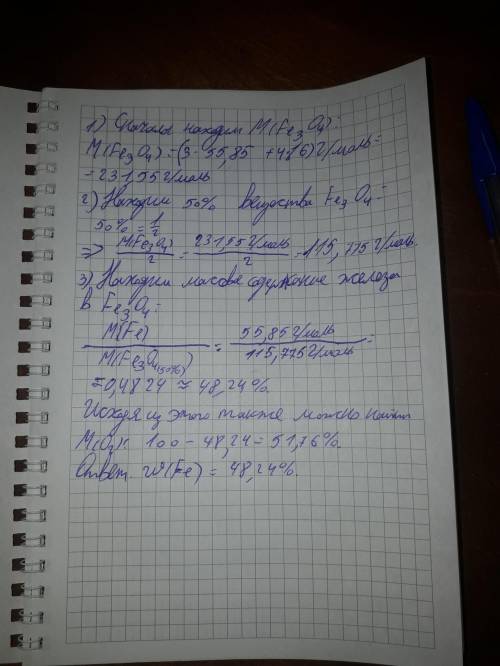 1) Сначала находим M(Fe3O4):
M(Fe3O4) = (3·55,85 + 4·16) г/моль =
= 231,55 г/моль
2) Находим 50% вещества Fe3O4 =
50% = 1/2
=> M(Fe3O4)/2 = 231,55 г/моль/2 = 115,775 г/моль.
3) Находим массовое содержание железа
в Fe3O4:
M(Fe)/M(Fe3O4(50%)) = 55,85 г/моль/115,775 г/моль =
= 0,4824 ≈ 48,24%
Исходя из этого также можно найти
M(O4): 100 - 48,24 = 51,76%.
Ответ. W(Fe) = 48,24%.